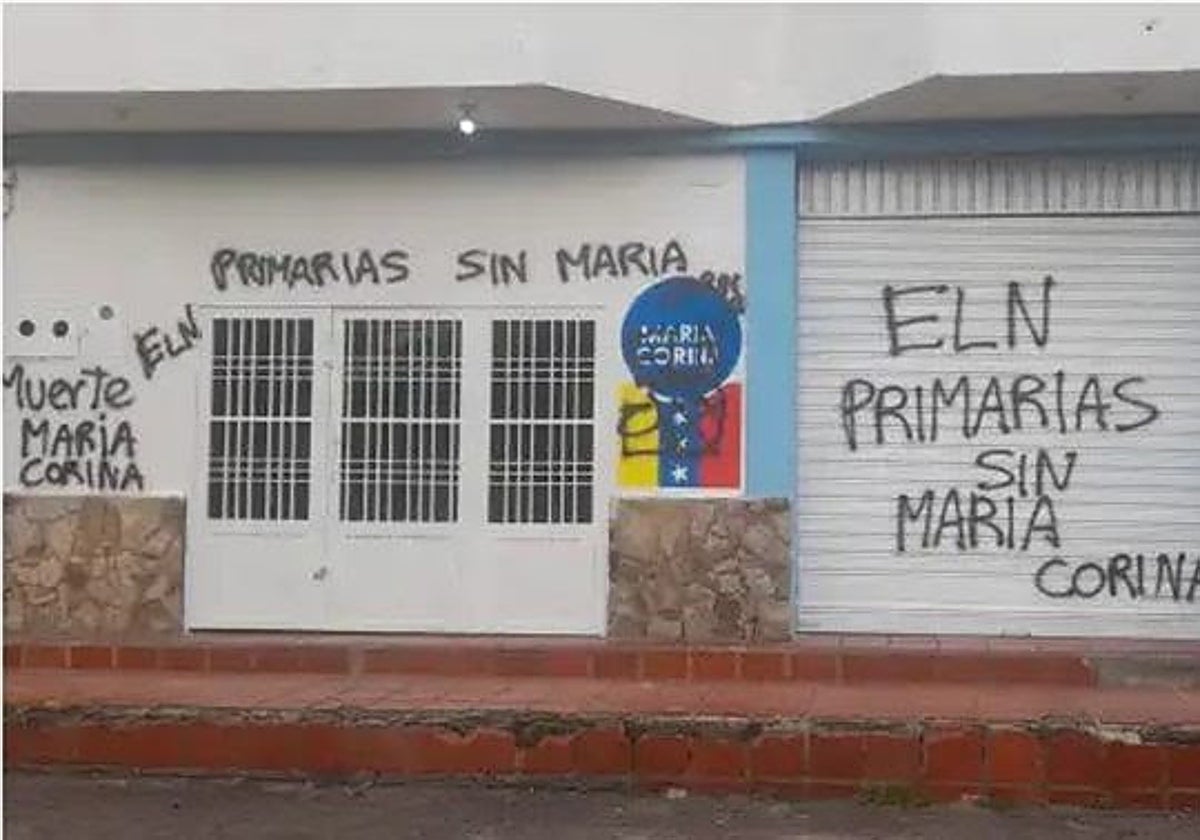 PRIMARIAS SIN MARIA
ELN
Muerte
MARIA
CORINA
MARIA
CORINA
ELN
PRIMARIAS
SIN
MARIA
CORINA